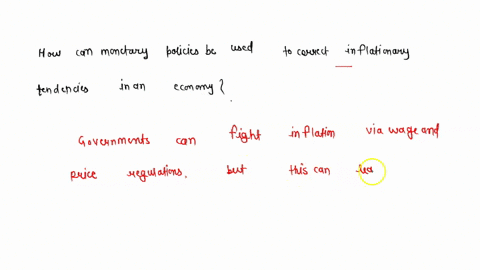 How can monetary policies be used to correct inflationary
tendencies in an economy?
Governments can fight inflation via wage and
price regulations. but this can